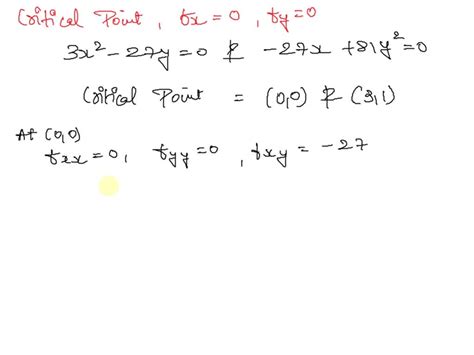 Critical Point, fx = 0, fy = 0
3x² - 27y = 0 & -27x + 81y² = 0
Critical Point = (0,0) & (3,1)
At (0,0)
fxx = 0, fyy = 0, fxy = -27